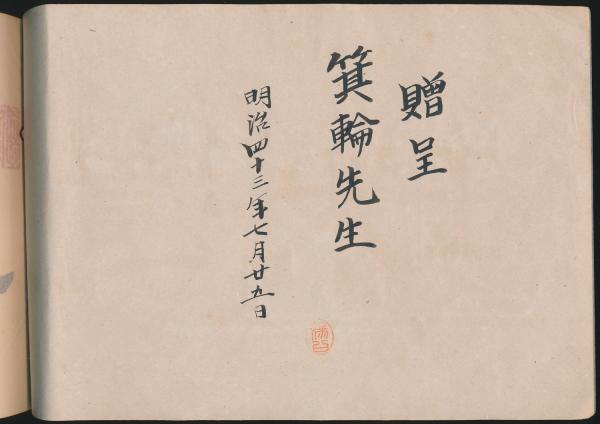 贈呈
箕輪先生
明治四十三年七月廿五日